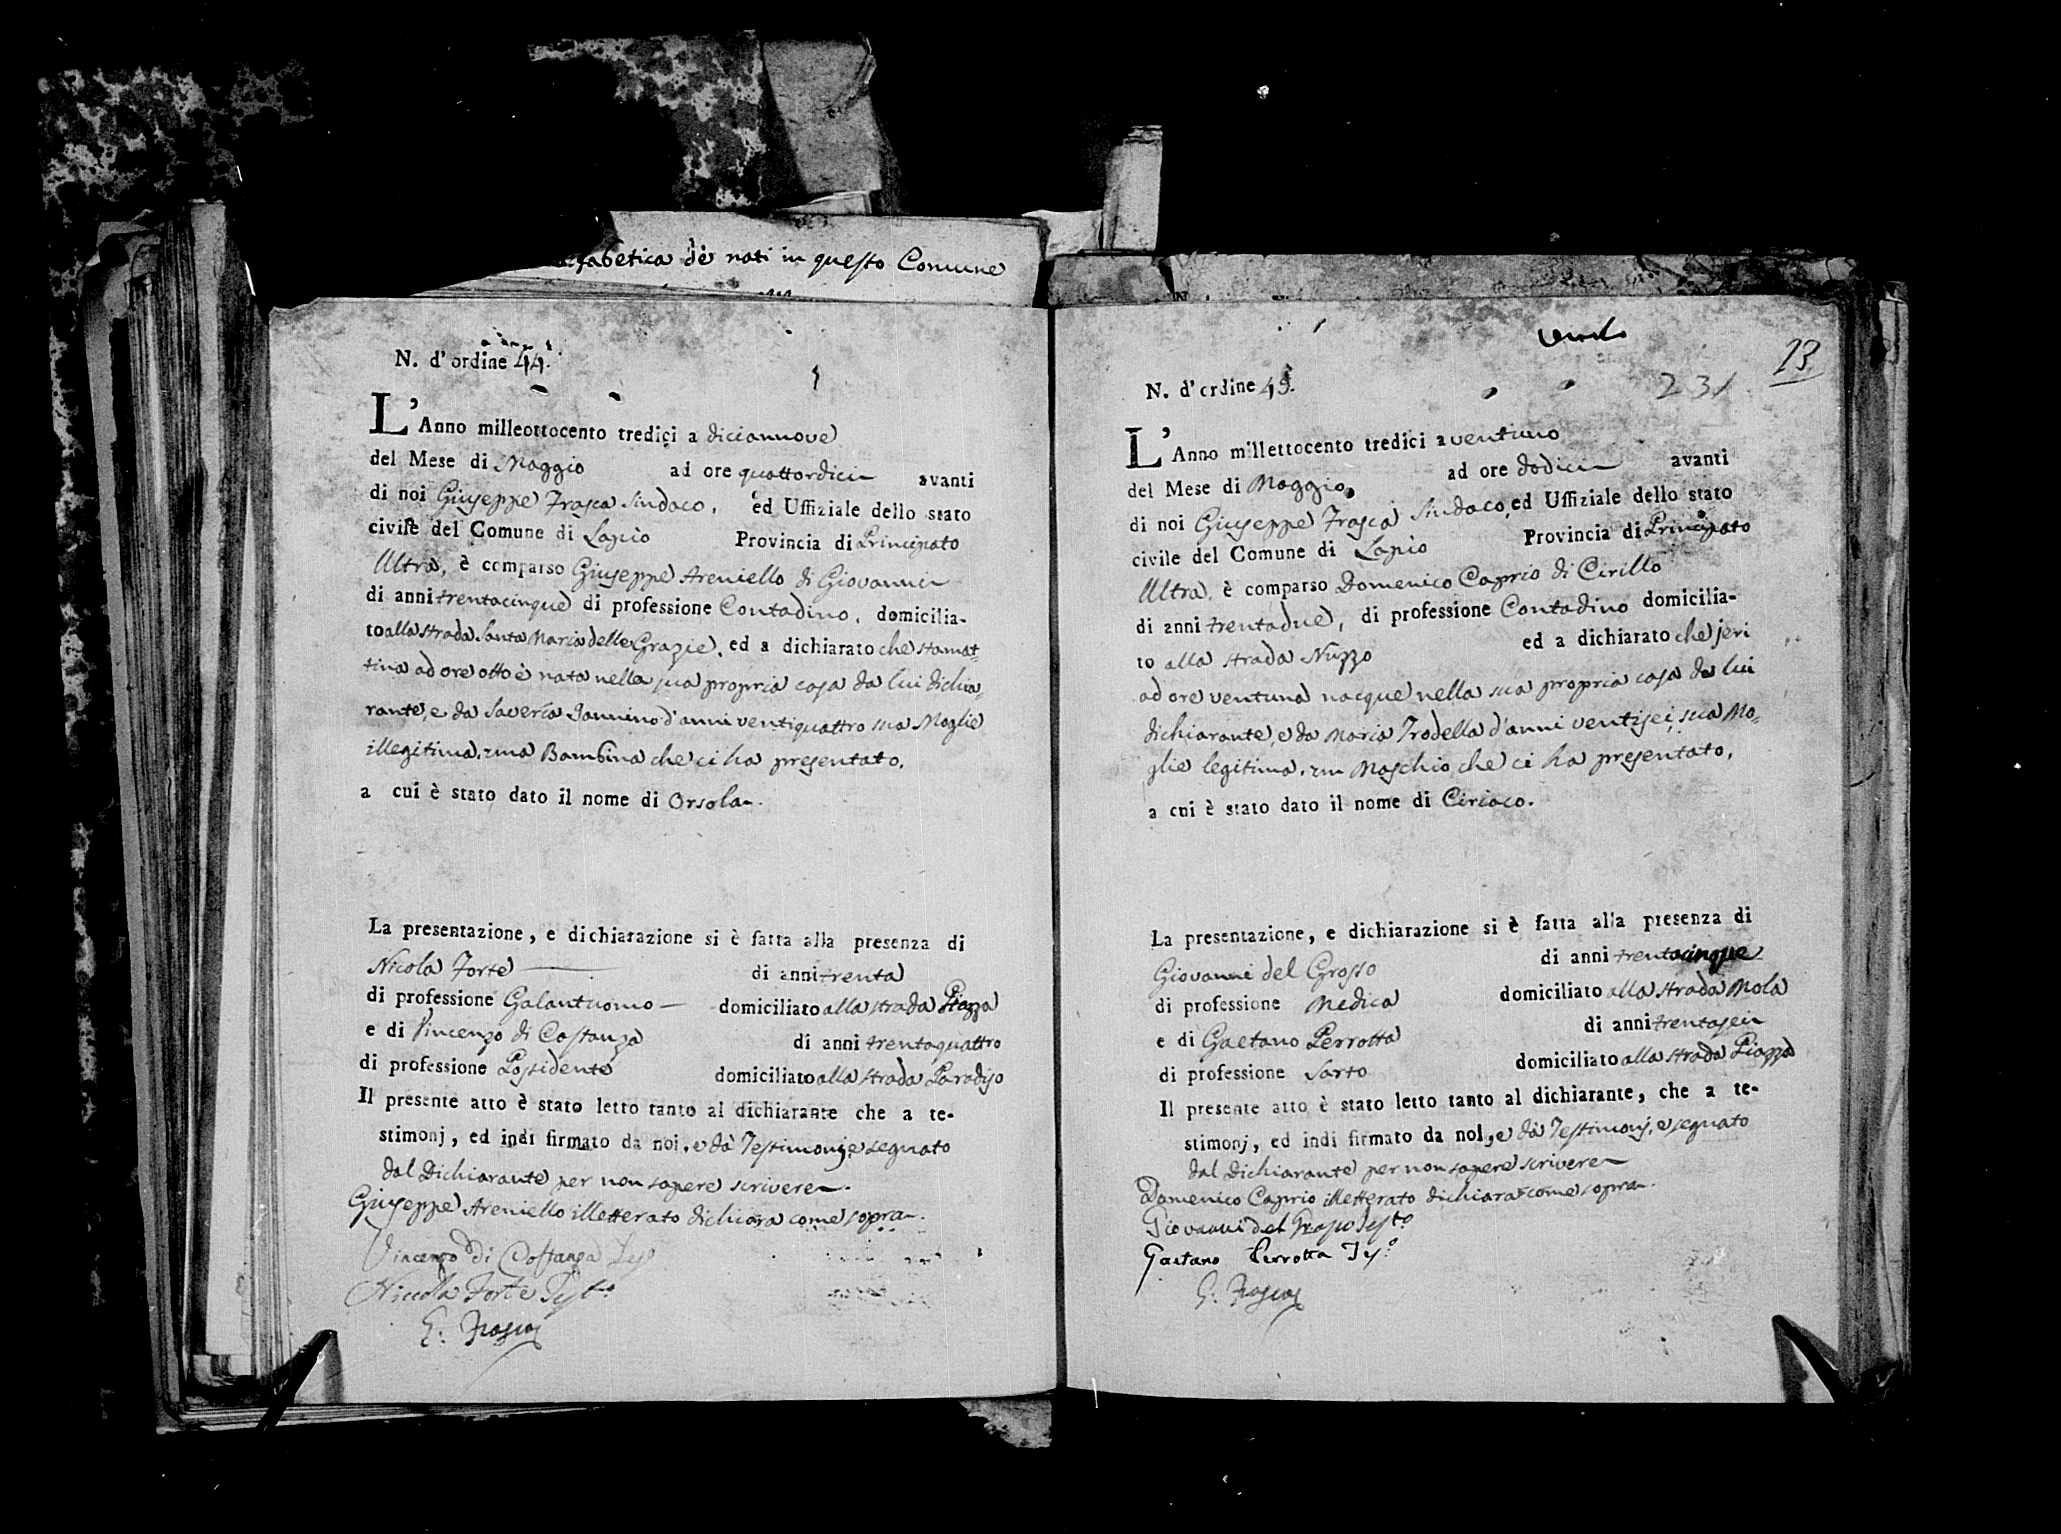 fabetica dè nati in questo Comune
N. d'ordine 44.
L'Anno milleottocento tredici a diciannove
del Mese di Maggio ad ore quattordici avanti
di noi Giuseppe Frasca Sindaco, ed Uffiziale dello stato
civile del Comune di Lapio Provincia di Principato
Ultra, è comparso Giuseppe Areniello di Giovanni
di anni trentacinque di professione Contadino, domicilia-
to alla strada Santa Maria delle Grazie, ed a dichiarato che stamat-
tina ad ore otto è nata nella sua propria casa da lui dichia-
rante, e da Saveria Iannino d'anni ventiquattro sua Moglie
illegitima, una Bambina che ci ha presentato.
a cui è stato dato il nome di Orsola.
La presentazione, e dichiarazione si è fatta alla presenza di
Nicola Forte di anni trenta
di professione Galantuomo domiciliato alla strada Piazza
e di Vincenzo di Costanza di anni trentaquattro
di professione Possidente domiciliato alla strada Paradiso
Il presente atto è stato letto tanto al dichiarante che a te-
stimonj, ed indi firmato da noi, e dà Testimonj, e segnato
dal Dichiarante per non sapere scrivere.
Giuseppe Areniello illetterato dichiara come sopra.
Vincenzo di Costanza Tes.o
Niccola Forte Test.o
G. Frasca
13
231
N. d'ordine 45.
L'Anno millettocento tredici a ventuno
del Mese di Maggio, ad ore dodici avanti
di noi Giuseppe Frasca Sindaco, ed Uffiziale dello stato
civile del Comune di Lapio Provincia di Principato
Ultra, è comparso Domenico Caprio di Cirillo
di anni trentadue, di professione Contadino domicilia-
to alla strada Nuzzo ed a dichiarato che jeri
ad ore ventuna nacque nella sua propria casa da lui
dichiarante, e da Maria Trodella d'anni ventisei, sua Mo-
glie legitima, un Maschio, che ci ha presentato,
a cui è stato dato il nome di Ciriaco.
La presentazione, e dichiarazione si è fatta alla presenza di
Giovanni del Grosso di anni trentacinque
di professione Medico domiciliato alla strada Mola
e di Gaetano Perrotta di anni trentasei
di professione Sarto domiciliato alla strada Piazza
Il presente atto è stato letto tanto al dichiarante, che a te-
stimonj, ed indi firmato da noi, e dà Testimonj, e segnato
dal Dichiarante per non sapere scrivere
Domenico Caprio illetterato dichiara come sopra.
Giovanni del Grosso Test.o
Gaetano Perrotta Tes.o
G. Frasca